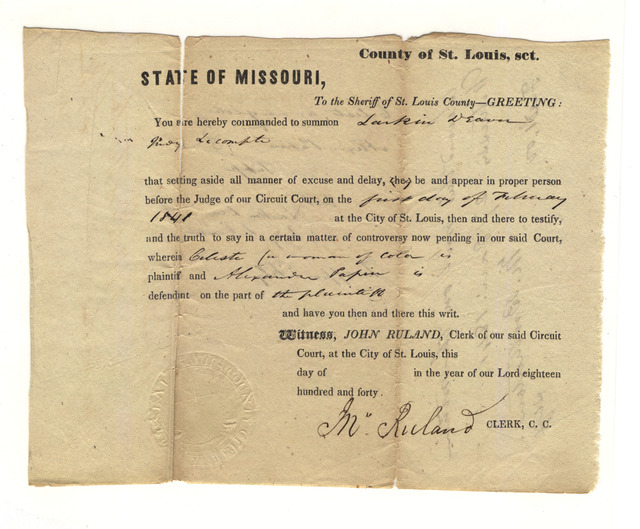 County of St. Louis, sct.
STATE OF MISSOURI,
To the Sheriff of St. Louis County—GREETING:
You are hereby commanded to summon Larkin Deaver
Judy Lecompte
that setting aside all manner of excuse and delay, they be and appear in proper person
before the Judge of our Circuit Court, on the first day of February
1841 at the City of St. Louis, then and there to testify,
and the truth to say in a certain matter of controversy now pending in our said Court,
wherein Celeste (a woman of color) is
plaintif and Alexander Papin is
defendent on the part of the plaintiff
and have you then and there this writ.
Witness, JOHN RULAND, Clerk of our said Circuit
Court, at the City of St. Louis, this
day of in the year of our Lord eighteen
hundred and forty .
Jno Ruland CLERK, C. C.